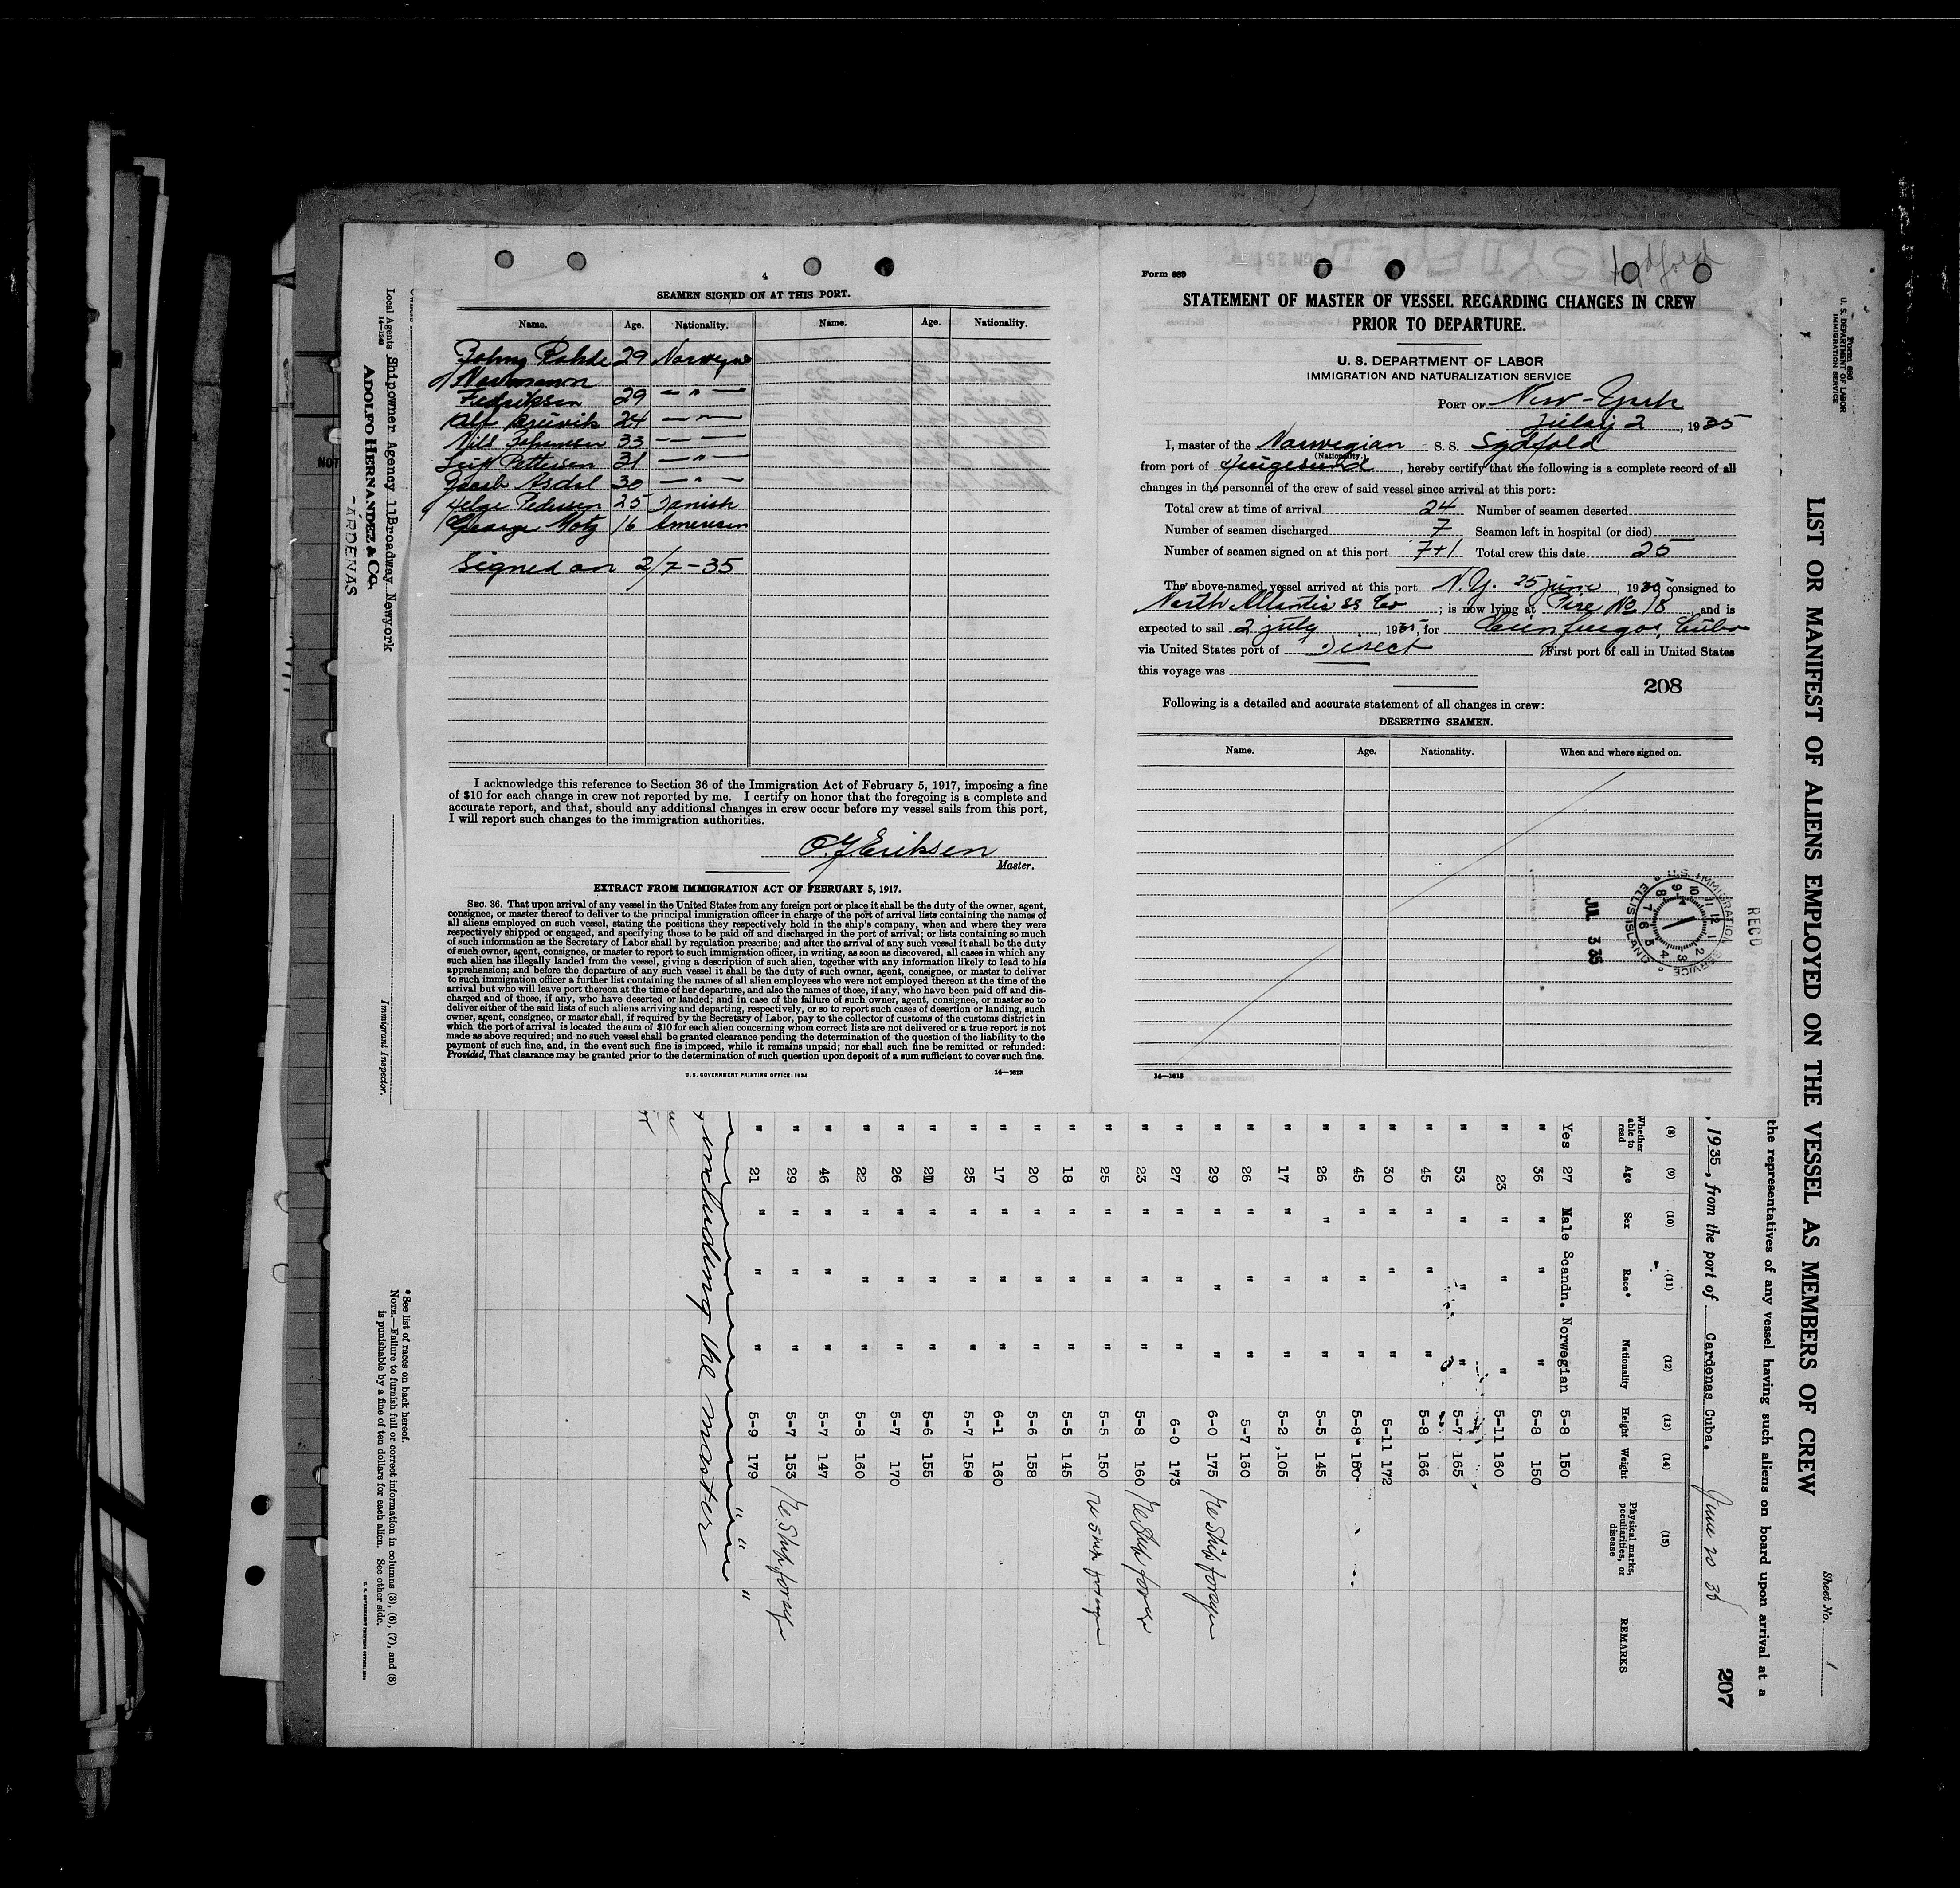 4
SEAMEN SIGNED ON AT THIS PORT.
Name. Age. Nationality. Name. Age. Nationality.
29 Norwegian
Fedriksen 29 — " —
Alf 24 — " —
Nils Johansen 33 — " —
Leif Pettersen 31 — " —
Jacob Asdal 30 — " —
Helge Pedersen 25 Danish
George Motz 16 American
Signed on 2/7-35
I acknowledge this reference to Section 36 of the Immigration Act of February 5, 1917, imposing a fine
of $10 for each change in crew not reported by me. I certify on honor that the foregoing is a complete and
accurate report, and that, should any additional changes in crew occur before my vessel sails from this port,
I will report such changes to the immigration authorities.
Eriksen
Master.
EXTRACT FROM IMMIGRATION ACT OF FEBRUARY 5, 1917.
SEC. 36. That upon arrival of any vessel in the United States from any foreign port or place it shall be the duty of the owner, agent,
consignee, or master thereof to deliver to the principal immigration officer in charge of the port of arrival lists containing the names of
all aliens employed on such vessel, stating the positions they respectively hold in the ship's company, when and where they were
respectively shipped or engaged, and specifying those to be paid off and discharged in the port of arrival; or lists containing so much
of such information as the Secretary of Labor shall by regulation prescribe; and after the arrival of any such vessel it shall be the duty
of such owner, agent, consignee, or master to report to such immigration officer, in writing, as soon as discovered, all cases in which any
such alien has illegally landed from the vessel, giving a description of such alien, together with any information likely to lead to his
apprehension; and before the departure of any such vessel it shall be the duty of such owner, agent, consignee, or master to deliver
to such immigration officer a further list containing the names of all alien employees who were not employed thereon at the time of the
arrival but who will leave port thereon at the time of her departure, and also the names of those, if any, who have been paid off and dis-
charged and of those, if any, who have deserted or landed; and in case of the failure of such owner, agent, consignee, or master so to
deliver either of the said lists of such aliens arriving and departing, respectively, or so to report such cases of desertion or landing, such
owner, agent, consignee, or master shall, if required by the Secretary of Labor, pay to the collector of customs of the customs district in
which the port of arrival is located the sum of $10 for each alien concerning whom correct lists are not delivered or a true report is not
made as above required; and no such vessel shall be granted clearance pending the determination of the question of the liability to the
payment of such fine, and, in the event such fine is imposed, while it remains unpaid; nor shall such fine be remitted or refunded:
Provided, That clearance may be granted prior to the determination of such question upon deposit of a sum sufficient to cover such fine.
U. S. GOVERNMENT PRINTING OFFICE: 1934 14—1613
Form 689
Sydfold
STATEMENT OF MASTER OF VESSEL REGARDING CHANGES IN CREW
PRIOR TO DEPARTURE.
U. S. DEPARTMENT OF LABOR
IMMIGRATION AND NATURALIZATION SERVICE
PORT OF New-York
July 2, 1935
I, master of the Norwegian S. S. Sydfold
(Nationality.)
from port of Haugesund, hereby certify that the following is a complete record of all
changes in the personnel of the crew of said vessel since arrival at this port:
Total crew at time of arrival 24 Number of seamen deserted
Number of seamen discharged 7 Seamen left in hospital (or died)
Number of seamen signed on at this port 7+1 Total crew this date 25
The above-named vessel arrived at this port N.Y. 25 june, 1935 consigned to
North Atlantic SS Co; is now lying at Pire No 18 and is
expected to sail 2 july, 1935, for Cienfuegos, Cuba
via United States port of Direct First port of call in United States
this voyage was
208
Following is a detailed and accurate statement of all changes in crew:
DESERTING SEAMEN.
Name. Age. Nationality. When and where signed on.
RECD
U.S. IMMIGRATION SERVICE
ELLIS ISLAND
JUL 3 35
14—1613
Form 686
U. S. DEPARTMENT OF LABOR
IMMIGRATION SERVICE
LIST OR MANIFEST OF ALIENS EMPLOYED ON THE VESSEL AS MEMBERS OF CREW
Sheet No. 1
the representatives of any vessel having such aliens on board upon arrival at a
, 1935, from the port of Cardenas Cuba. June 20 35
207
(8) (9) (10) (11) (12) (13) (14) (15)
Whether able to read Age Sex Race* Nationality Height Weight Physical marks, peculiarities, or disease REMARKS
Yes 27 Male Scandn. Norwegian 5-8 150
" 36 " " " 5-8 150
" 23 " " " 5-11 160
" 53 " " " 5-7 165
" 45 " " " 5-8 166
" 30 " " " 5-11 172
" 45 " " " 5-8 150
" 26 " " " 5-5 145
" 17 " " " 5-2 105
" 26 " " " 5-7 160
" 29 " " " 6-0 175
" 27 " " " 6-0 173
" 23 " " " 5-8 160
" 25 " " " 5-5 150
" 18 " " " 5-5 145
" 20 " " " 5-6 158
" 17 " " " 6-1 160
" 25 " " " 5-7 150
" 21 " " " 5-6 155
" 26 " " " 5-7 170
" 22 " " " 5-8 160
" 46 " " " 5-7 147
" 29 " " " 5-7 153
" 21 " " " 5-9 179
including the master
*See list of races on back hereof.
NOTE.—Failure to furnish full or correct information in columns (3), (6), (7), and (8)
is punishable by a fine of ten dollars for each alien. See other side.
Local Agents Shipowner Agency 11Broadway Newyork
ADOLFO HERNANDEZ & CO.
-CARDENAS
Immigrant Inspector.
NOT